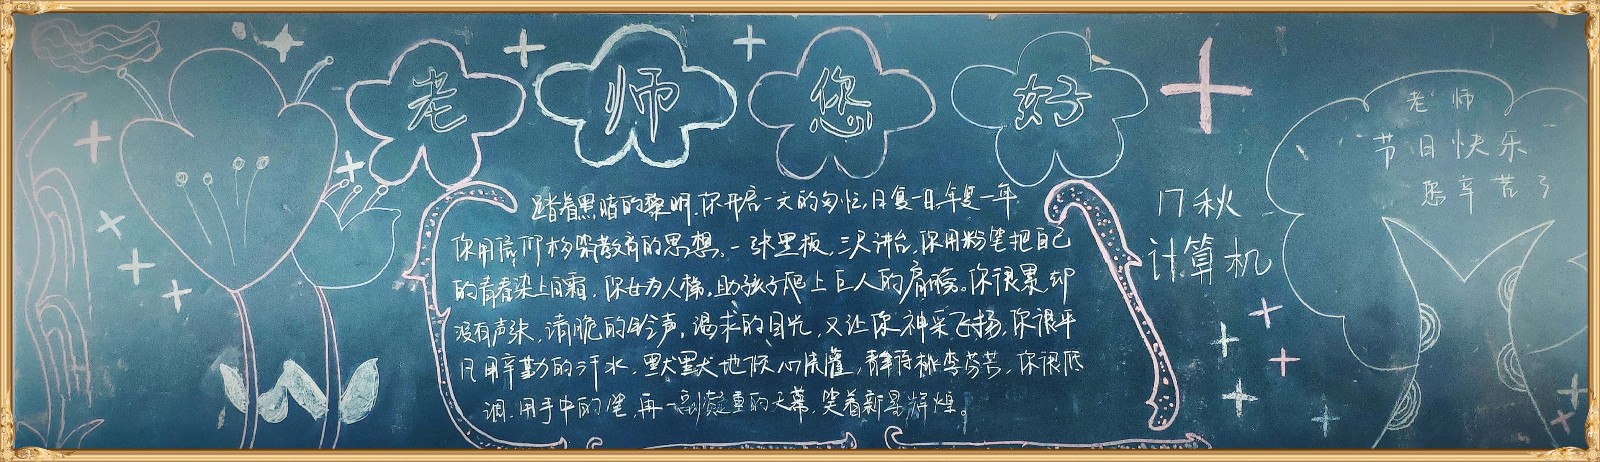 老师您好
踏着黑暗的黎明,你开启一天的匆忙,日复一日,年复一年
你用信仰教育的思想。一张黑板,三尺讲台,你用粉笔把自己
的青春染上白霜。你甘为人梯,助孩子爬上巨人的肩膀。你很累却
没有声张,清脆的铃声,渴求的目光,又让你神采飞扬,你很平
凡用辛勤的汗水,默默地,静待桃李芬芳,你很低
调,用手中的笔,再一凝重的天幕,笑着新星辉煌。
17秋
计算机
老师
节日快乐
您辛苦了